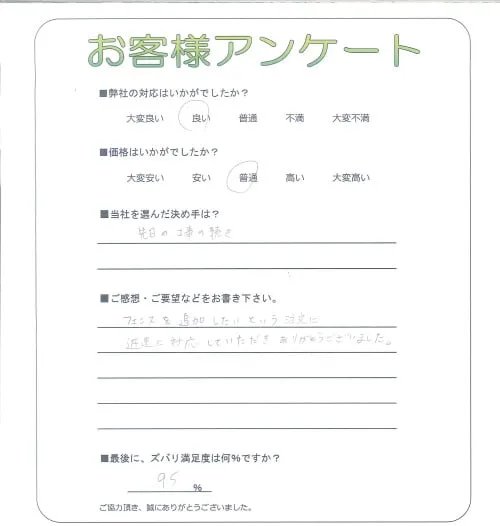 お客様アンケート
■弊社の対応はいかがでしたか？
大変良い 良い 普通 不満 大変不満
■価格はいかがでしたか？
大変安い 安い 普通 高い 大変高い
■当社を選んだ決め手は？
先日の工事の続き
■ご感想・ご要望などをお書き下さい。
フェンスを追加したいという注文に
迅速に対応していただきありがとうございました。
■最後に、ズバリ満足度は何%ですか？
95 %
ご協力頂き、誠にありがとうございました。